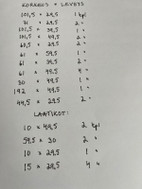 KORKEUS × LEVEYS
101,5 × 29,5 1 kpl
81 × 29,5 2 "
101,5 × 39,5 1 "
101,5 × 49,5 2 "
60,5 × 29,5 2 "
61 × 59,5 1 "
61 × 39,5 2 "
61 × 49,5 4 "
30 × 49,5 1 "
192 × 49,5 1 "
49,5 × 29,5 2 "
LAATIKOT:
10 × 49,5 2 kpl
59,5 × 30 2 "
10 × 29,5 1 "
15 × 29,5 4 "